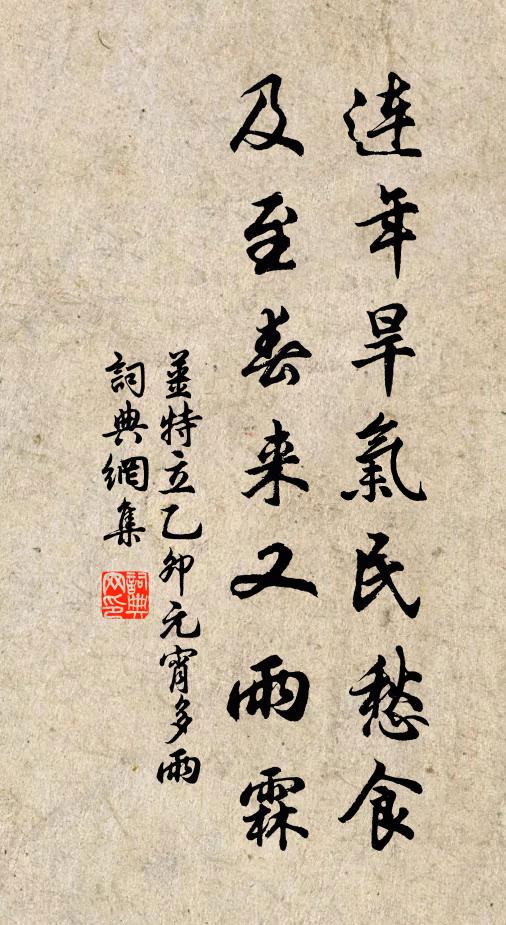 连年旱氣民愁食
及至春来又雨霖
姜特立乙卯元宵多雨
詞典網集
詞典网印